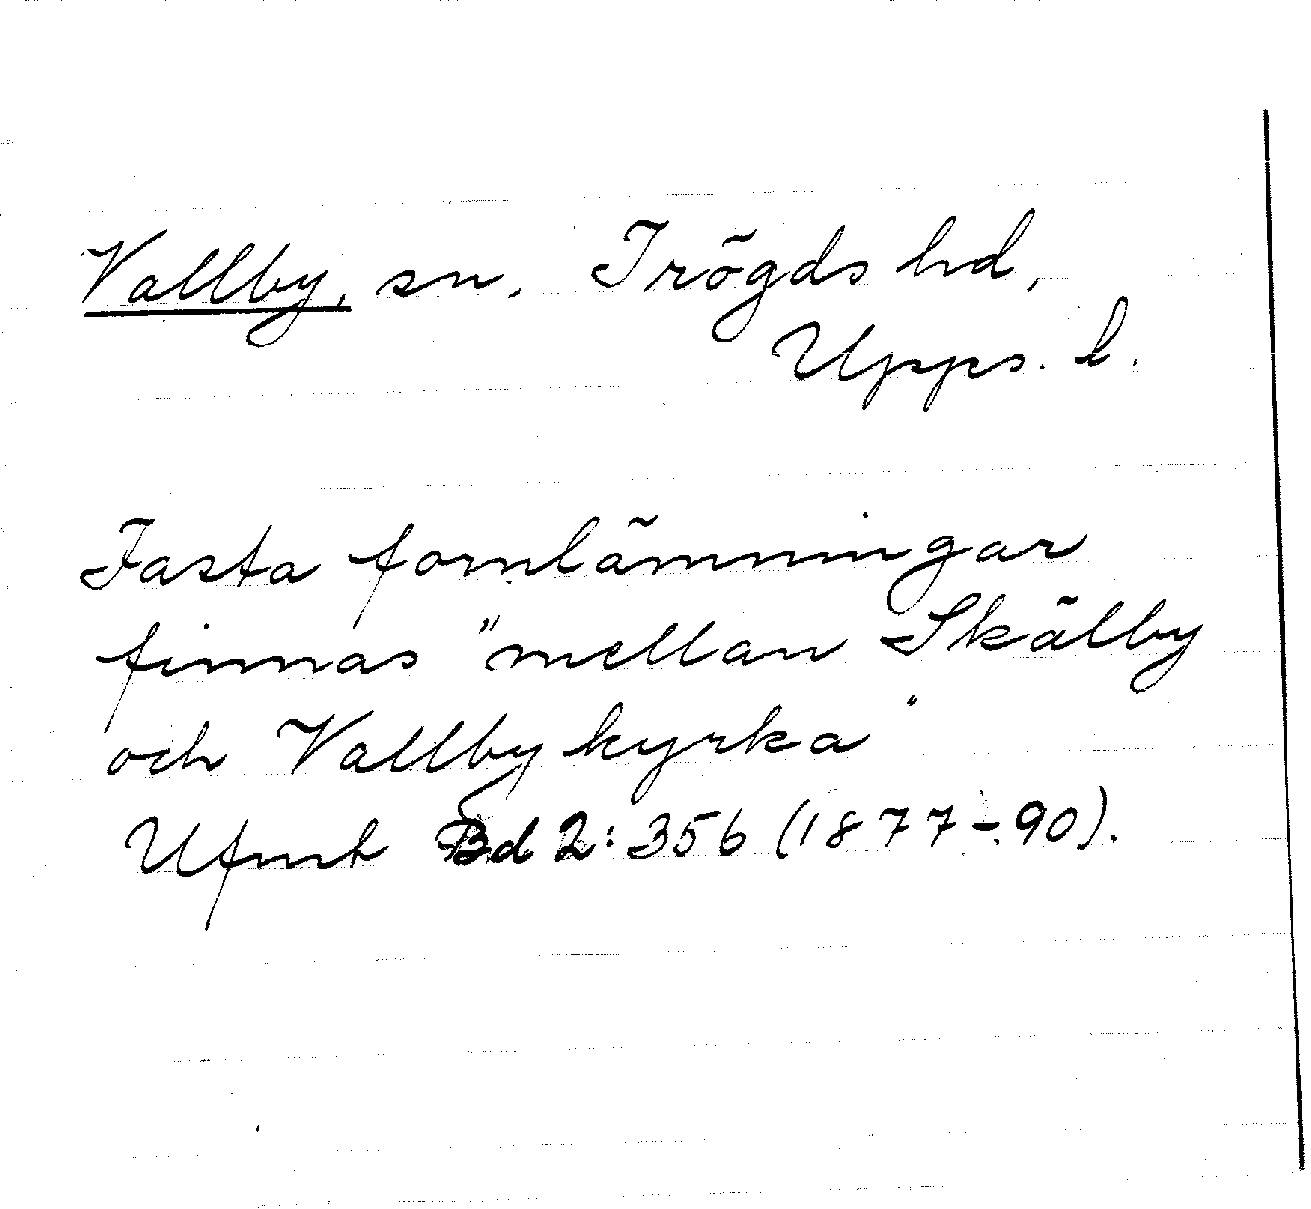 Vallby, sn. Trögds hd,
Upps. l.
Fasta fornlämningar
finnas "mellan Skälby
och Vallby kyrka"
Ufmt Bd 2: 356 (1877-90).